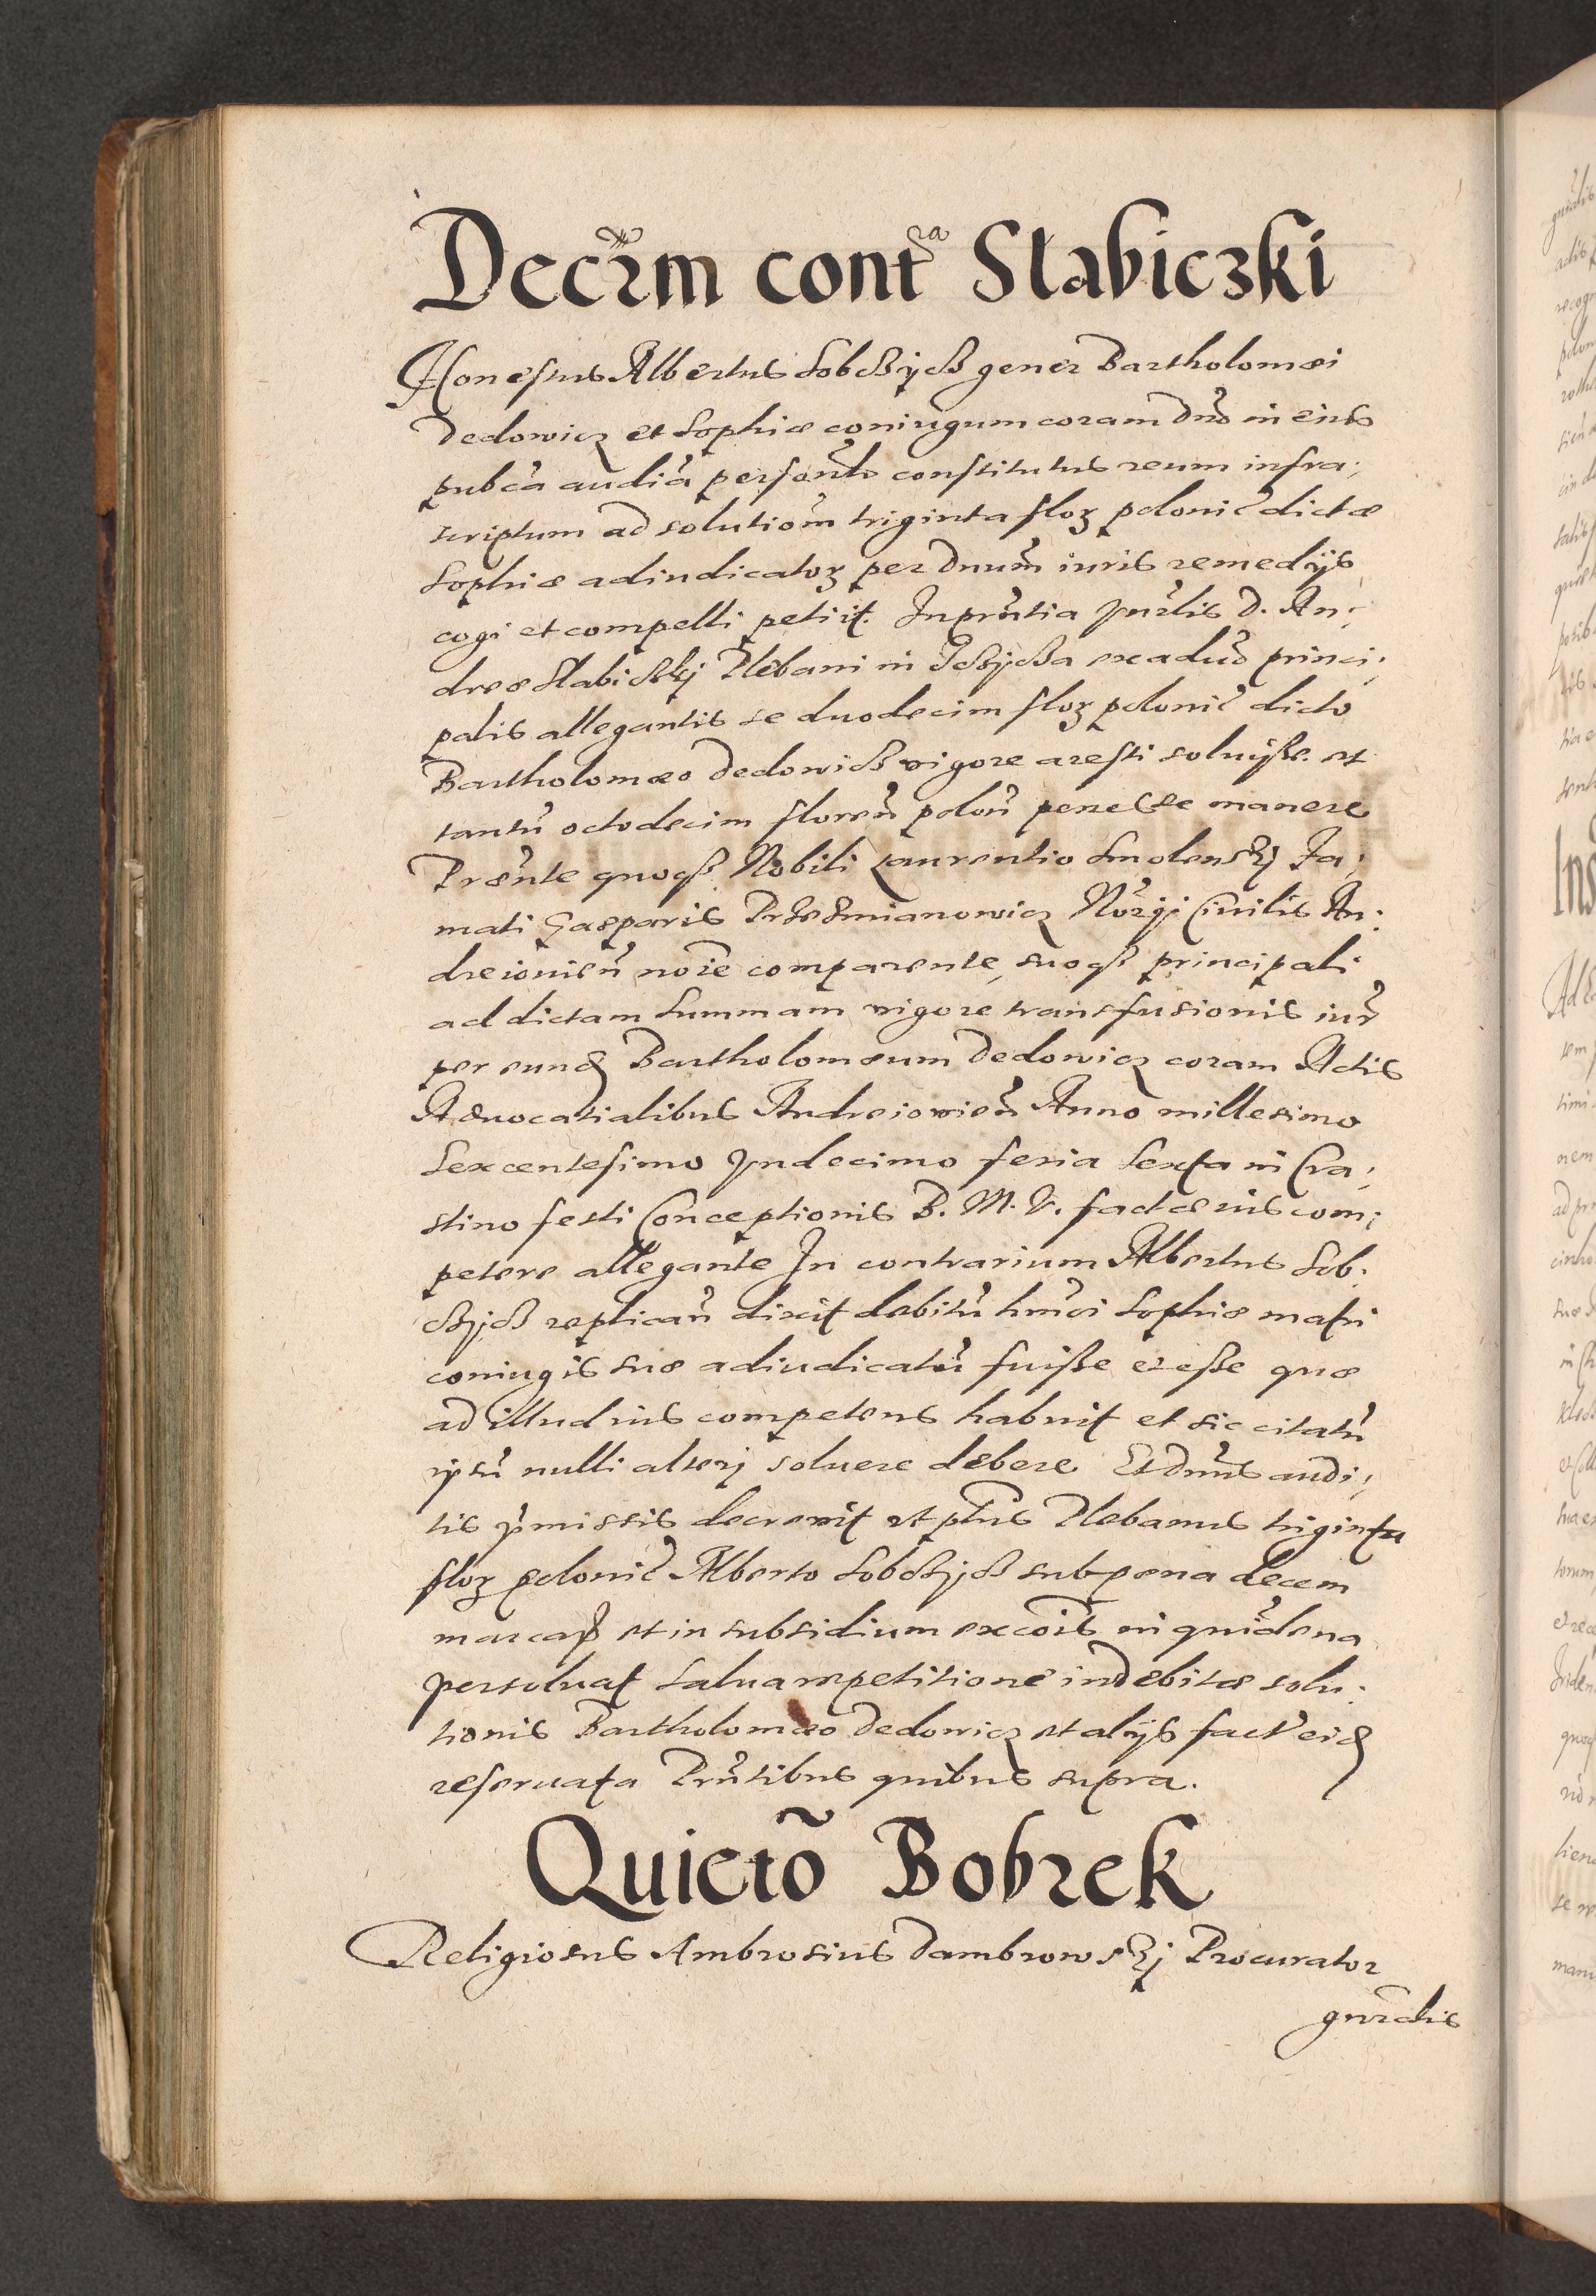 Decrm contra Slabiczki
Honestus Albertus Sobczycz gener Bartholomæi
Dedowicz et Sophiæ coniugum coram Dno in eius
pubca audia personlr constitutus reum infra,
scriptum ad solutiom triginta flor polonic dictæ
Sophiæ adiudicator per Dnum iuris remedijs
cogi et compelli petiit. In prntia Vnrlis D. An,
dreæ Slabiczkj Plebani in ex aduo princi,
palis allegantis se duodecim flor polonic dicto
Bartholomæo Dedowicz vigore aresti soluisse. et
tantu octodecim floren polon penes se manere
Præsnte quoqß Nobili Laurentio Smolenskj Fa,
mati Gasparis Przesmianowicz Norij Ciuilis An,
dreiouien noie comparente, suoqß principali
ad dictam summam vigore transfusionis iur
per eund Bartholomæum Dedowicz coram Actis
Aduocatialibus Andreiouien Anno millesimo
Sexcentesimo Vndecimo feria Sexta in Cra,
stino festi Conceptionis B. M. V. factæ ius com,
petere allegante In contrarium Albertus Sob,
czycz replican dixit debitu hmoi Sophiæ matri
coniugis suæ adiudicatu fuisse et esse quæ
ad illud ius competens habuit et sic citatu
ipsu nulli alterj soluere debere Et Dnus audi,
tis pmissis decreuit vt pfus Plebanus triginta
flor polonic Alberto Sobczycz sub pena decem
marcar et in subsidium excois in quidena
persoluat salua repetitione indebitæ solu,
tionis Bartholomæo Dedowicz et alijs fact eid
reseruata Prntibus quibus supra.
Quieto Bobrek
Religiosus Ambrosius Dambrowskj Procurator
gnralis